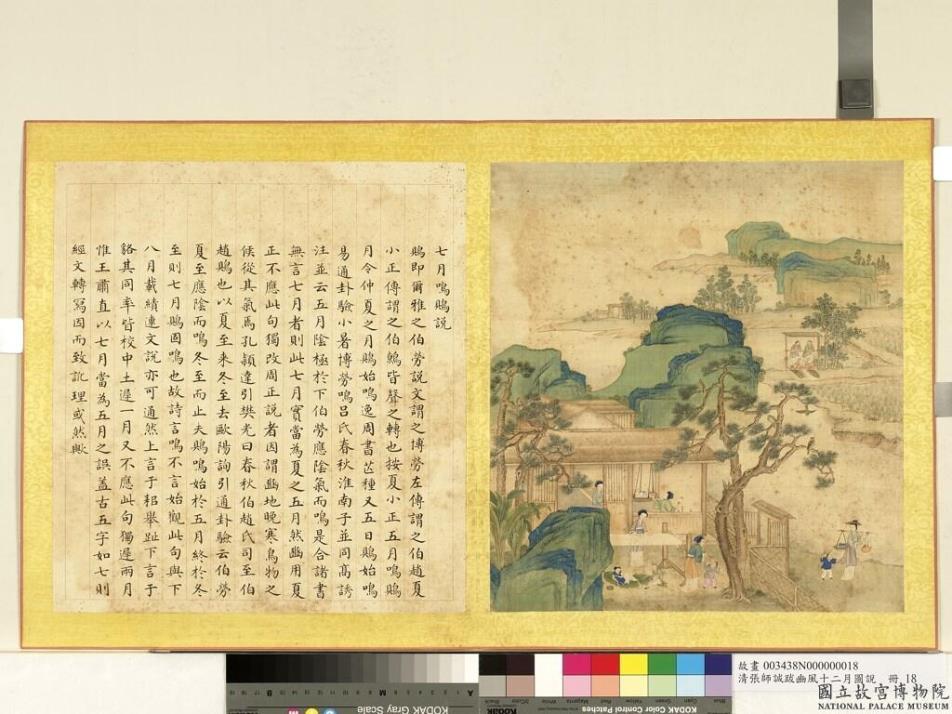 七月鳴鵙説
鵙即爾雅之伯勞説文謂之博勞左傳謂之伯趙夏
小正傳謂之伯鷯皆聲之轉也按夏小正五月鳴鵙
月令仲夏之月鵙始鳴逸周書芒種又五日鵙始鳴
易通卦驗小暑博勞鳴吕氏春秋淮南子並同高誘
注並云五月陰極於下伯勞應陰氣而鳴是合諸書
無言七月者則此七月實當為夏之五月然豳用夏
正不應此句獨改周正説者因謂豳地晚寒鳥物之
候從其氣焉孔穎達引樊光曰春秋伯趙氏司至伯
趙鵙也以夏至來冬至去歐陽詢引通卦驗云伯勞
夏至應陰而鳴冬至而止夫鵙鳴始於五月終於冬
至則七月鵙固鳴也故詩言鳴不言始觀此句與下
八月載績連文説亦可通然上言于耜舉趾下言于
貉其同率皆校中土遲一月又不應此句獨遲兩月
惟王肅直以七月當為五月之誤蓋古五字如七則
經文轉寫因而致訛理或然歟
故畫 003438N000000018
清張師誠跋豳風十二月圖說 冊 18
國立故宮博物院
NATIONAL PALACE MUSEUM
KODAK Gray Scale
KODAK Color Control Patches